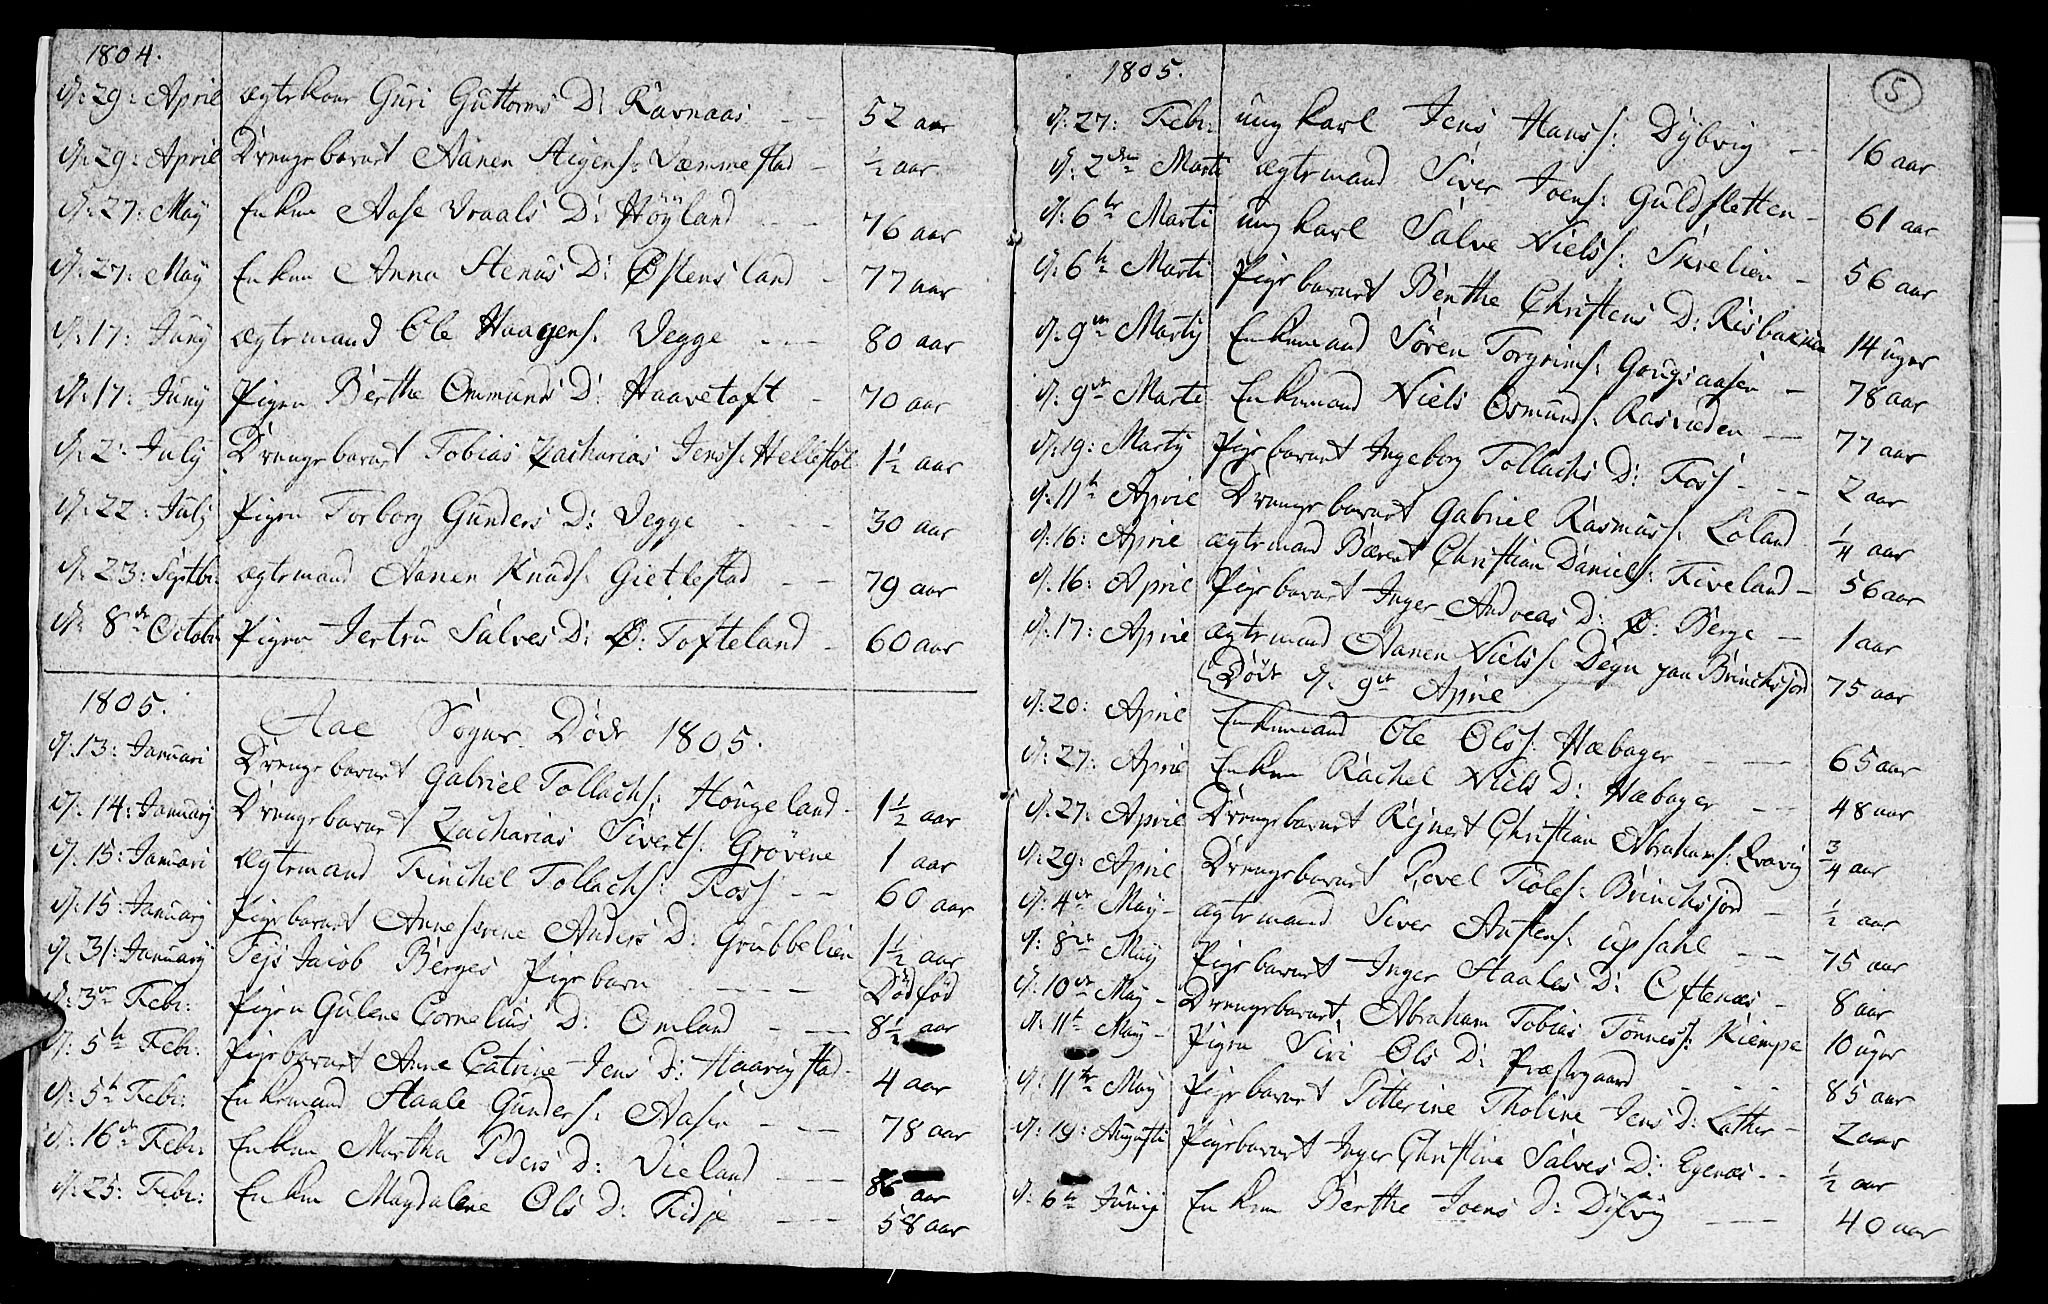 1804.
d: 29: April ægte kone Guri Guttorms D: Ravnaas - - 52 aar
d: 29: April Drengebarnet Aanen Stigens: Væmmestad - ½ aar
d: 27: May Enken Aase Vraals D: Höyland - - 76 aar
d: 27: May Enken Anna Stenus D: Østensland - 77 aar
d: 17: Juny ægtemand Ole Haagens: Vegge - - - 80 aar
d: 17: Juny Pigen Berthe Ommunds D: Haavetoft - 70 aar
d: 2: July Drengebarnet Tobias Zacharias Jenss: Hellestøl 1½ aar
d: 22: July Pigen Torborg Gunders D: Vegge - - - 30 aar
d: 23: Septbr: ægtemand Aanen Knuds: Gietlestad - - 79 aar
d: 8de Octobr Pigen Jertru Salves D: Ø: Tofteland - 60 aar
1805.
Aae Sogns Døde 1805.
d: 13: Januari Drengebarnet Gabriel Tollachs: Hougeland - 1½ aar
d: 14: January Drengebarnet Zacharias Siverts: Grövene 1 aar
d: 15: Januari Ægtemand Tinchel Tollachs: Foss - - 60 aar
d: 15: January Pigebarnet Anneserene Anders D: Grubbelien 1½ aar
d: 31: January Tejs Jacob Berges Pigebarn - - - - Dödfød
d: 3de Febr: Pigen Gulene Cornelius D: Omland - - 8½ aar
d: 5te Febr: Pigebarnet Anne Catrine Jens D: Haavigstad - 4 aar
d: 5te Febr: Enkemand Staale Gunders: Aasen - - - 78 aar
d: 16de Febr: Enken Martha Peders D: Vieland - - - 86 aar
d: 25: Febr: Enken Magdalene Ols D: Fidje - - - 58 aar
1805.
5.
d: 27: Febr: ung karl Jens Hanss: Dybvig - - 16 aar
d: 2den Marti ægtemand Siver Joens: Guldsletten - 61 aar
d: 6te Marti ung karl Salve Nielss: Surelien - 56 aar
d: 6te Marti Pigebarnet Benthe Christens D: Risbakken 14 uger
d: 9de Martij Enkemand Sören Torgrims: Gougsaasen - 78 aar
d: 9de Marti Enkemand Niels Osmunds: Rasveden - - 77 aar
d: 19: Martij Pigebarnet Ingeborg Tollachs D: Foss - - - 2 aar
d: 11te April Drengebarnet Gabriel Rasmuss: Loland ¼ aar
d: 16: April ægtemand Bærent Christian Daniels: Fiveland - 56 aar
d: 16: April Pigebarnet Inger Andreas D: Ø: Berge - 1 aar
d: 17: April ægtemand Aanen Nielss: Degn paa Brinchsjord 75 aar
(Døde d: 9de April
d: 20: April Enkemand Ole Olss: Hæbager - - 65 aar
d: 27: April Enken Rachel Niels D: Hæbager - - 48 aar
d: 27: April Drengebarnet Rejnert Christian Abrahams: Qvavig ¾ aar
d: 29: April Drengebarnet Povel Fiöles: Brinchsjord - ½ aar
d: 4de May - ægtemand Siver Anstens: upsahl - - 75 aar
d: 8de May Pigebarnet Inger Staales D: Oftenæs - 8 aar
d: 10de May - Drengebarnet Abraham Tobias Tönness: Kiempe 10 uger
d: 11te May - Pigen Siri Ols D: Præstegaard - - - 85 aar
d: 11te May Pigebarnet Pitterine Tholine Jens D: Lather - 2 aar
d: 19: Augusti Pigebarnet Inger Christine Salves D: Egenæs - - ½ aar
d: 6te Junij Enken Berthe Joens D: Dybvig - - - 40 aar